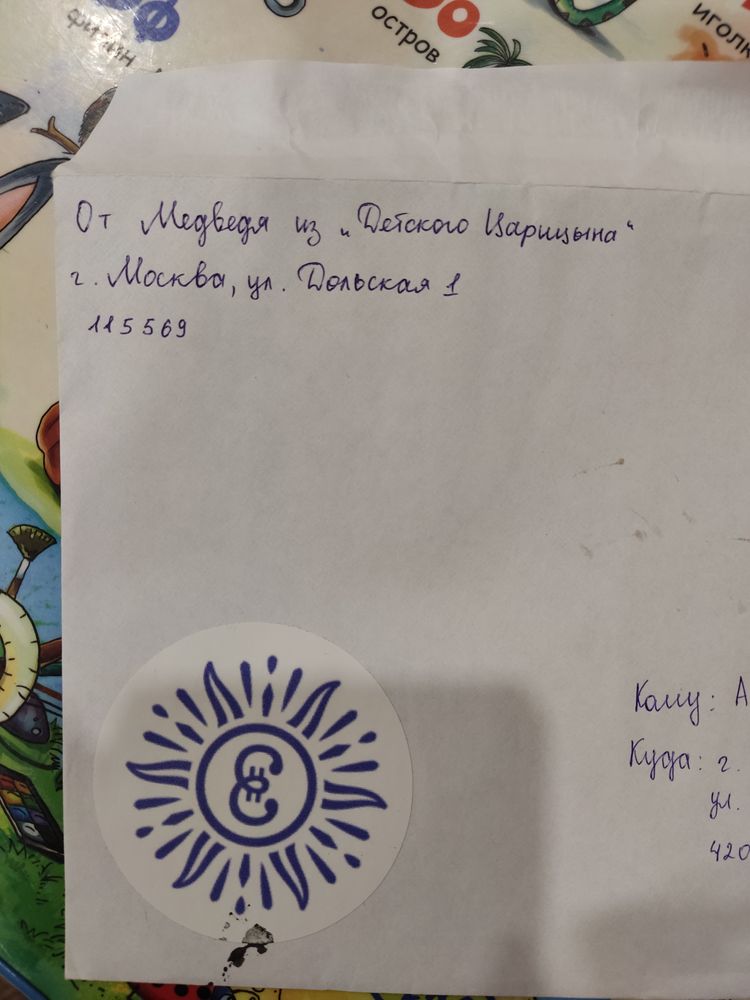 филин
остров
иголк
От Медведя из „Детского Царицына“
г. Москва, ул. Дольская 1
115569
Кому: А
Куда: г.
ул.
420